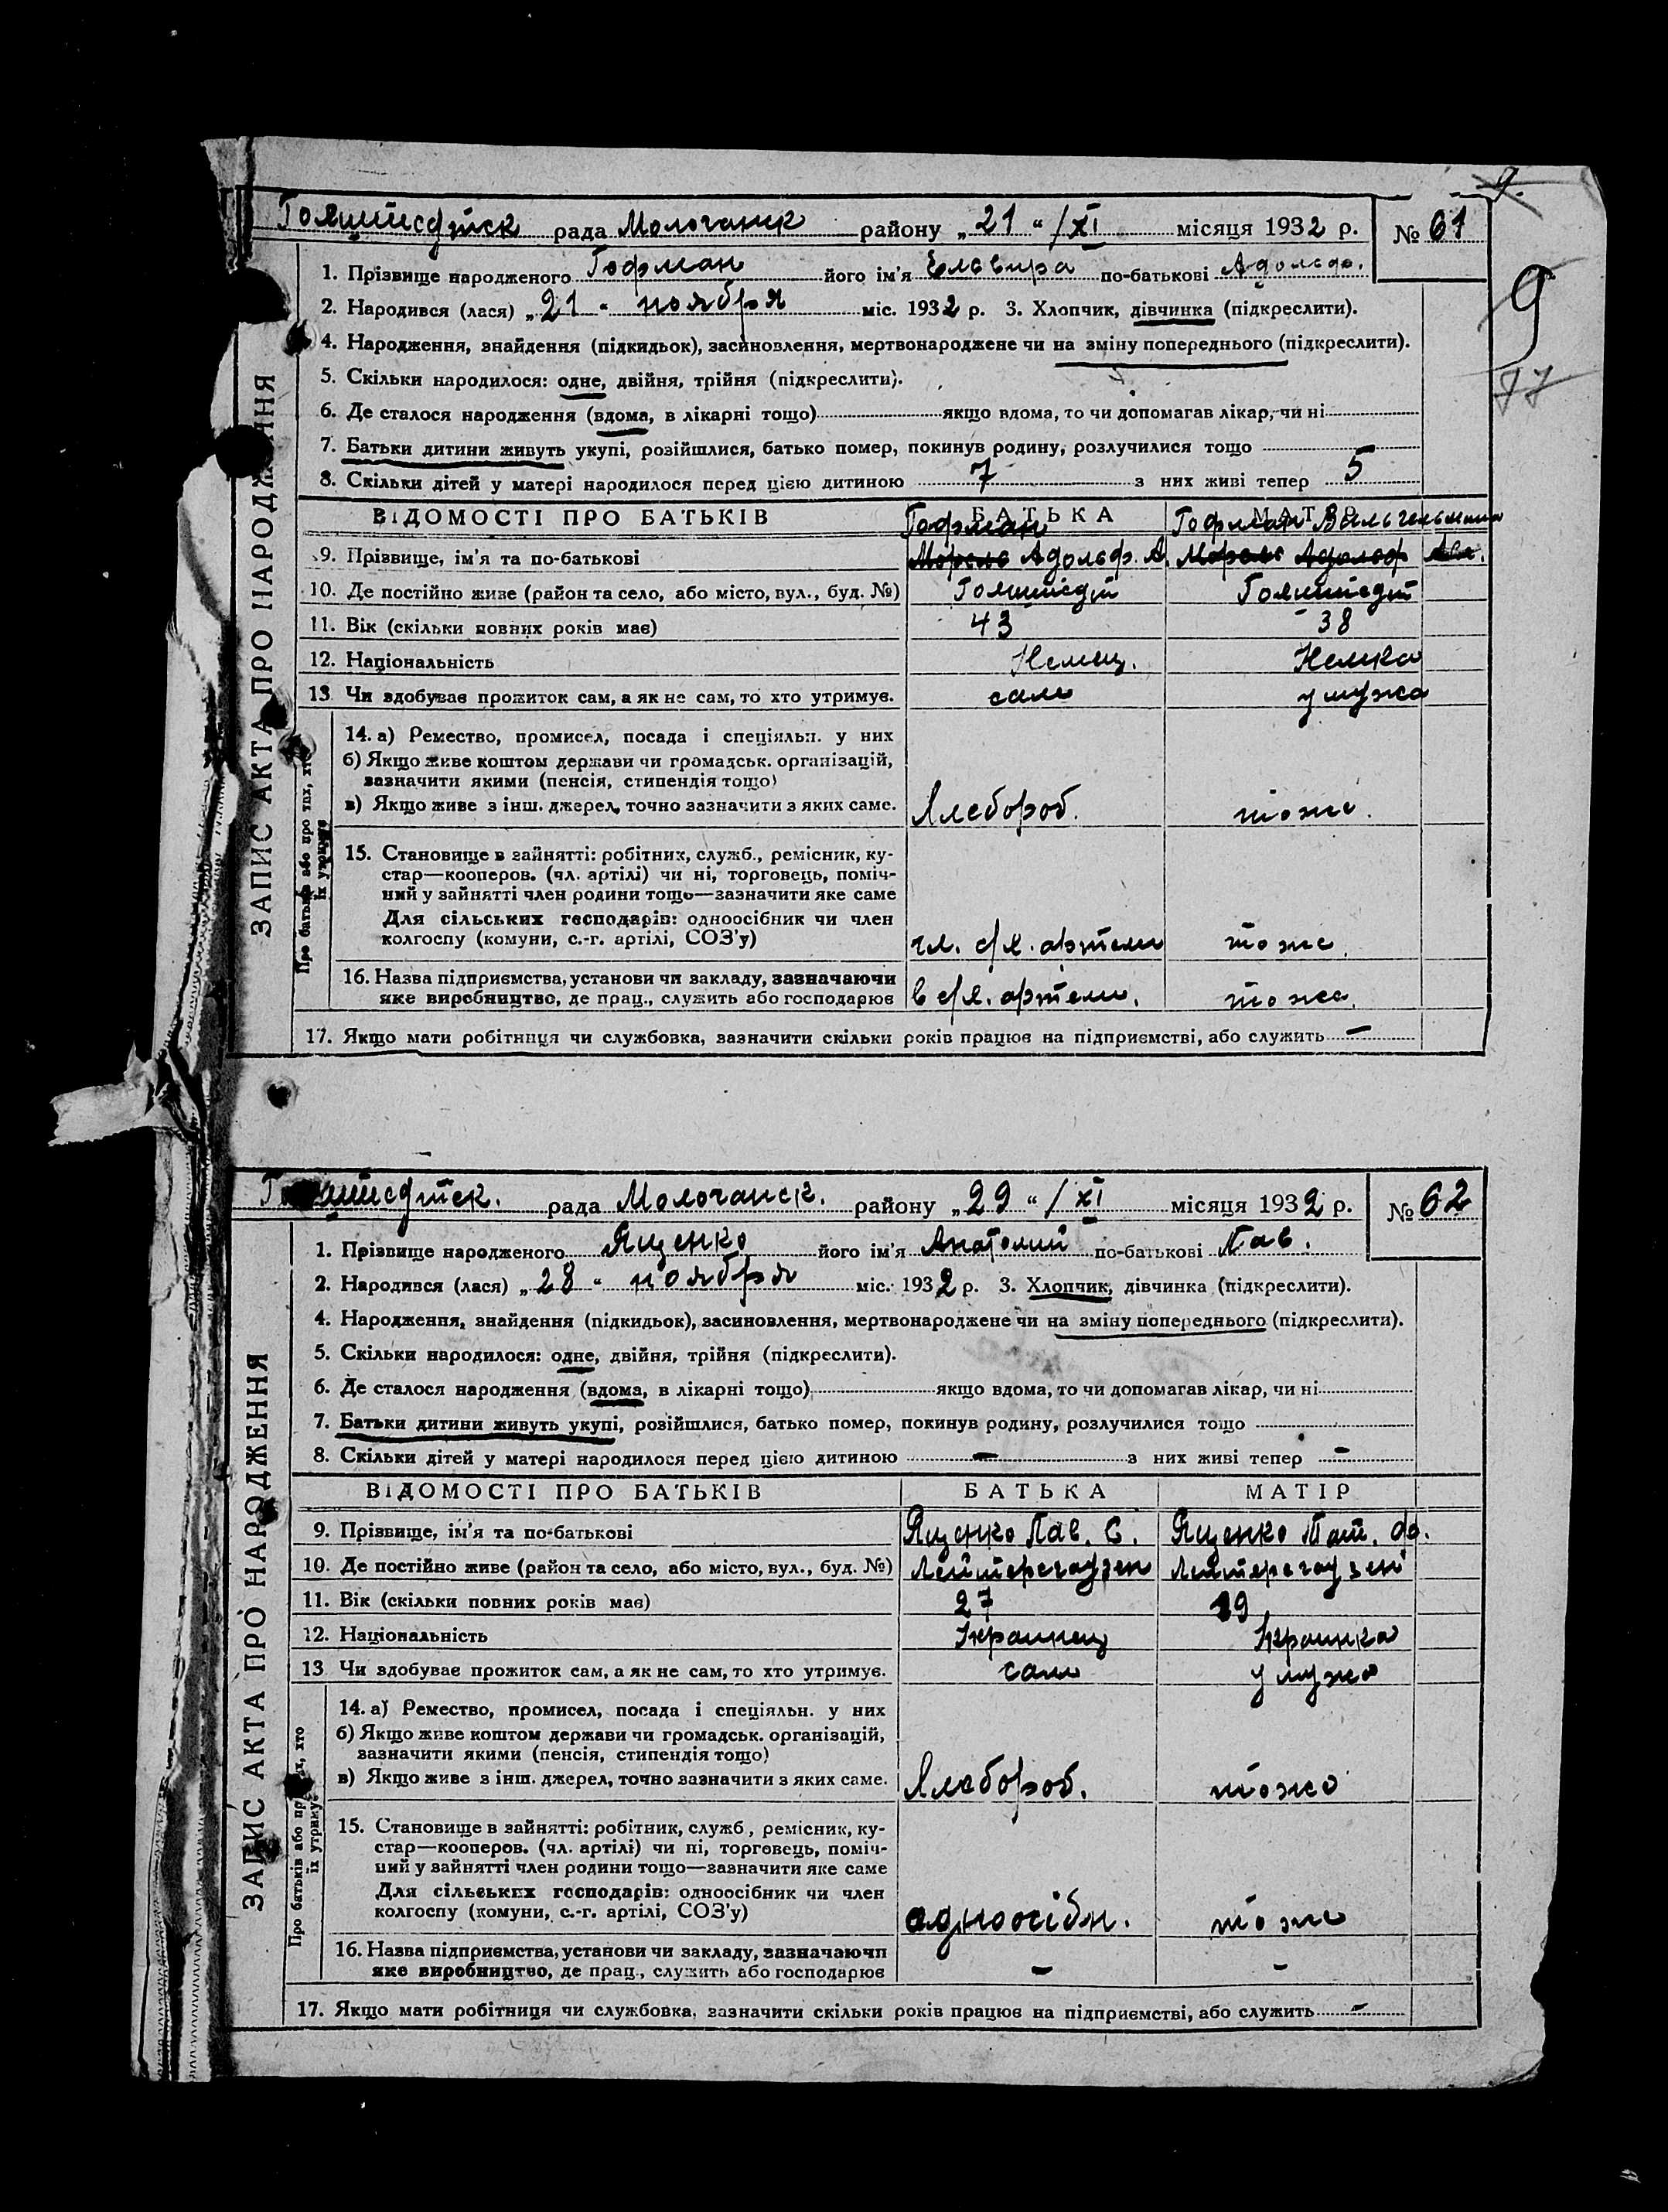 9.
Голштедтск рада Молочанск району „21“ /XI місяця 1932 р. № 61
9
77
ЗАПИС АКТА ПРО НАРОДЖЕННЯ
1. Прізвище народженого Гофман його ім'я Ельвира по-батькові Адольф.
2. Народився (лася) „21“ ноября міс. 1932 р. 3. Хлопчик, дівчинка (підкреслити).
4. Народження, знайдення (підкидьок), засиновлення, мертвонароджене чи на зміну попереднього (підкреслити).
5. Скільки народилося: одне, двійня, трійня (підкреслити).
6. Де сталося народження (вдома, в лікарні тощо) якщо вдома, то чи допомагав лікар, чи ні
7. Батьки дитини живуть укупі, розійшлися, батько помер, покинув родину, розлучилися тощо
8. Скільки дітей у матері народилося перед цією дитиною 7 з них живі тепер 5
ВІДОМОСТІ ПРО БАТЬКІВ БАТЬКА МАТІР
Гофман Гофман Вильгельмина
9. Прізвище, ім'я та по-батькові Адольф. А.
10. Де постійно живе (район та село, або місто, вул., буд. №) Голштедт Голштедт
11. Вік (скільки повних років має) 43 38
12. Національність Немец. Немка
13. Чи здобуває прожиток сам, а як не сам, то хто утримує. сам у мужа
Про батьків або про тих, хто
їх утримує
14. а) Ремество, промисел, посада і спеціяльн. у них
б) Якщо живе коштом держави чи громадськ. організацій,
зазначити якими (пенсія, стипендія тощо)
в) Якщо живе з інш. джерел, точно зазначити з яких саме. Хлебороб. тоже.
15. Становище в зайнятті: робітник, служб., ремісник, ку-
стар—кооперов. (чл. артілі) чи ні, торговець, поміч-
ний у зайнятті член родини тощо—зазначити яке саме
Для сільських господарів: одноосібник чи член
колгоспу (комуни, с.-г. артілі, СОЗ'у) чл. с/х. артели тоже.
16. Назва підприємства, установи чи закладу, зазначаючи
яке виробництво, де прац., служить або господарює в с/х. артели. тоже.
17. Якщо мати робітниця чи службовка, зазначити скільки років працює на підприємстві, або служить —
рада Молочанск. району „29“ /XI місяця 1932 р. № 62
ЗАПИС АКТА ПРО НАРОДЖЕННЯ
1. Прізвище народженого Ященко його ім'я Анатолий по-батькові Пав.
2. Народився (лася) „28“ ноября міс. 1932 р. 3. Хлопчик, дівчинка (підкреслити).
4. Народження, знайдення (підкидьок), засиновлення, мертвонароджене чи на зміну попереднього (підкреслити).
5. Скільки народилося: одне, двійня, трійня (підкреслити).
6. Де сталося народження (вдома, в лікарні тощо) якщо вдома, то чи допомагав лікар, чи ні
7. Батьки дитини живуть укупі, розійшлися, батько помер, покинув родину, розлучилися тощо
8. Скільки дітей у матері народилося перед цією дитиною — з них живі тепер —
ВІДОМОСТІ ПРО БАТЬКІВ БАТЬКА МАТІР
9. Прізвище, ім'я та по-батькові Ященко Пав. С. Ященко Тат. Фо.
10. Де постійно живе (район та село, або місто, вул., буд. №)
11. Вік (скільки повних років має) 27 19
12. Національність Украинец Украинка
13 Чи здобуває прожиток сам, а як не сам, то хто утримує. сам у мужа
Про батьків або про тих, хто
їх утримує
14. а) Ремество, промисел, посада і спеціяльн. у них
б) Якщо живе коштом держави чи громадськ. організацій,
зазначити якими (пенсія, стипендія тощо)
в) Якщо живе з інш. джерел, точно зазначити з яких саме. Хлебороб. тоже
15. Становище в зайнятті: робітник, служб., ремісник, ку-
стар—кооперов. (чл. артілі) чи ні, торговець, поміч-
ний у зайнятті член родини тощо—зазначити яке саме
Для сільських господарів: одноосібник чи член
колгоспу (комуни, с.-г. артілі, СОЗ'у) одноосібн. тоже
16. Назва підприємства, установи чи закладу, зазначаючи
яке виробництво, де прац., служить або господарює — —
17. Якщо мати робітниця чи службовка, зазначити скільки років працює на підприємстві, або служить —